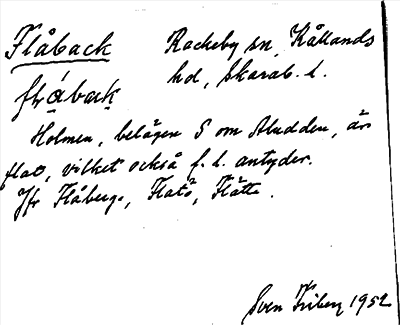 Flåback Rackeby sn, Kållands
hd, Skarab. l.
flåback
Holmen, belägen S om Aludden, är
flat, vilket också f. l. antyder.
Jfr Flåberge, Flatö, Flätte.
Sven Friberg 1952